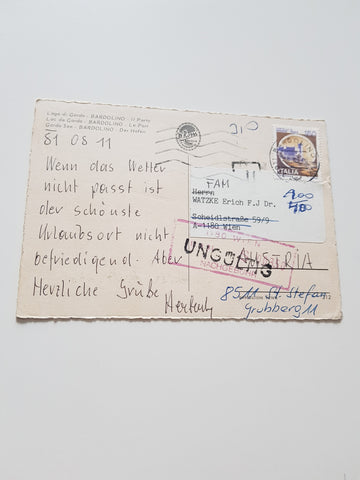 Lago di Garda - BARDOLINO - Il Porto
Lac de Garde - BARDOLINO - Le Port
Garda See - BARDOLINO - Der Hafen
81 08 11
Wenn das Wetter
nicht passt ist
der schönste
Urlaubsort nicht
befriedigend. Aber
Herzliche Grüße
ITALIA
FAM
Herrn
WATZKE Erich F.J Dr.
Scheidlstraße 59/9
A-1180 Wien
UNGÜLTIG
AUSTRIA
8511 St. Stefan
Grubberg 11